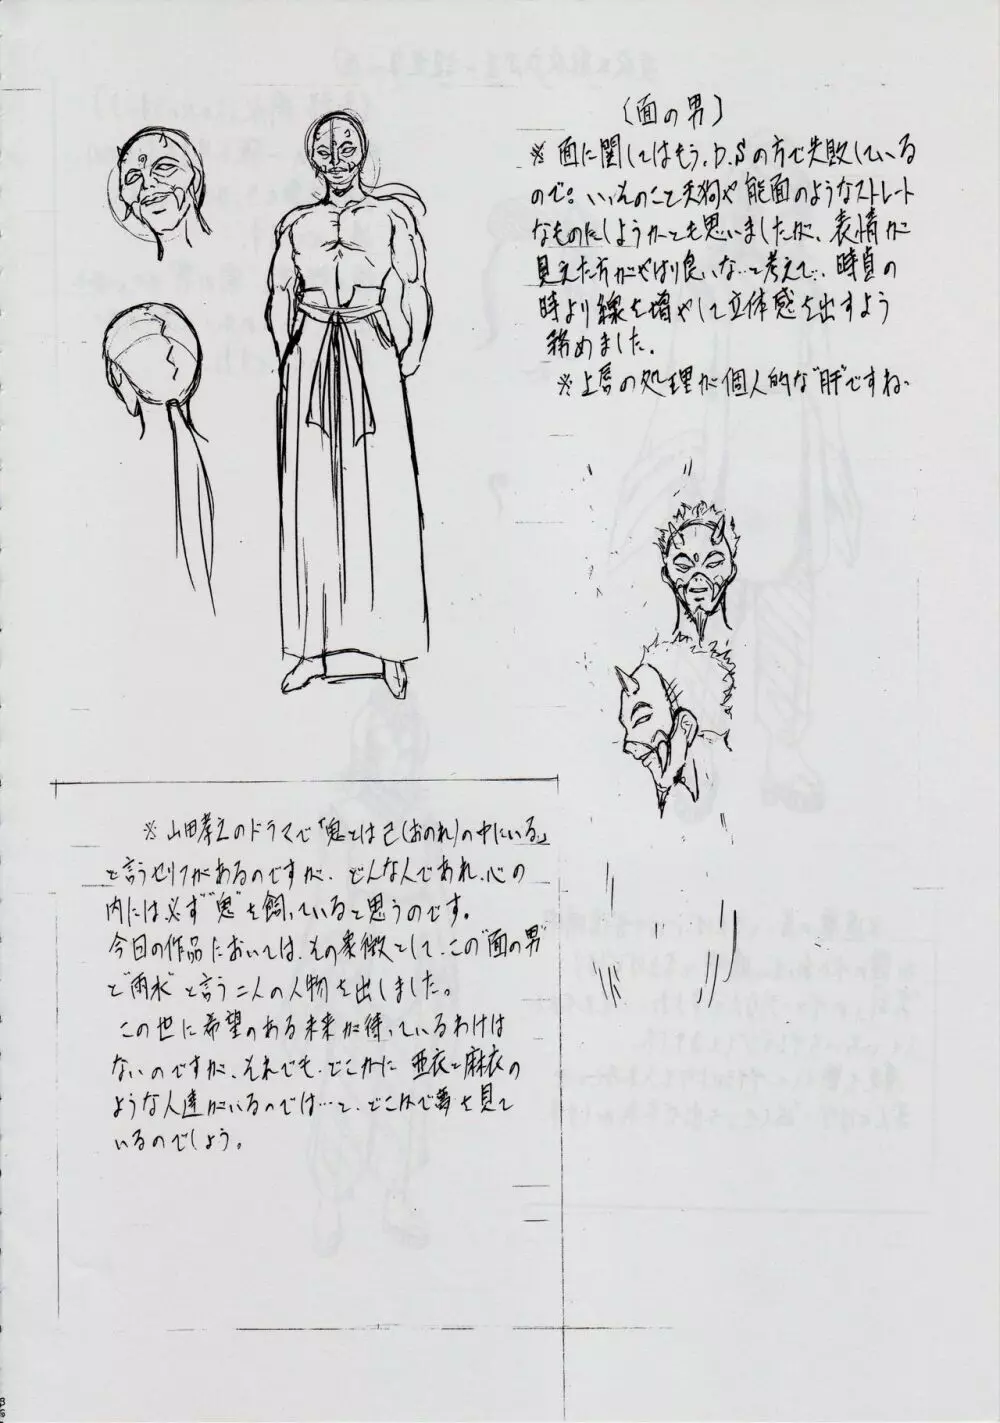 (面の男)
※ 面に関してはもう、D.Sの方で失敗している
ので。いっそのこと天狗や能面のようなストレート
なものにしようかとも思いましたが、表情が
見えた方がやはり良いな…と考えて…、時貞の
時より線を増やして立体感を出すよう
務めました。
※上唇の処理が個人的な"肝"ですね。
※山田孝之のドラマで「鬼とは己(おのれ)の中にいる」
と言うセリフがあるのですが、どんな人であれ、心の
内には必ず"鬼"を飼っていると思うのです。
今回の作品においては、その象徴として、この"面の男"
と"雨水"と言う二人の人物を出しました。
この世に希望のある未来が待っているわけは
ないのですが、それでも、どこかに亜衣と麻衣の
ような人達がいるのでは…と、どこかで夢を見て
いるのでしょう。